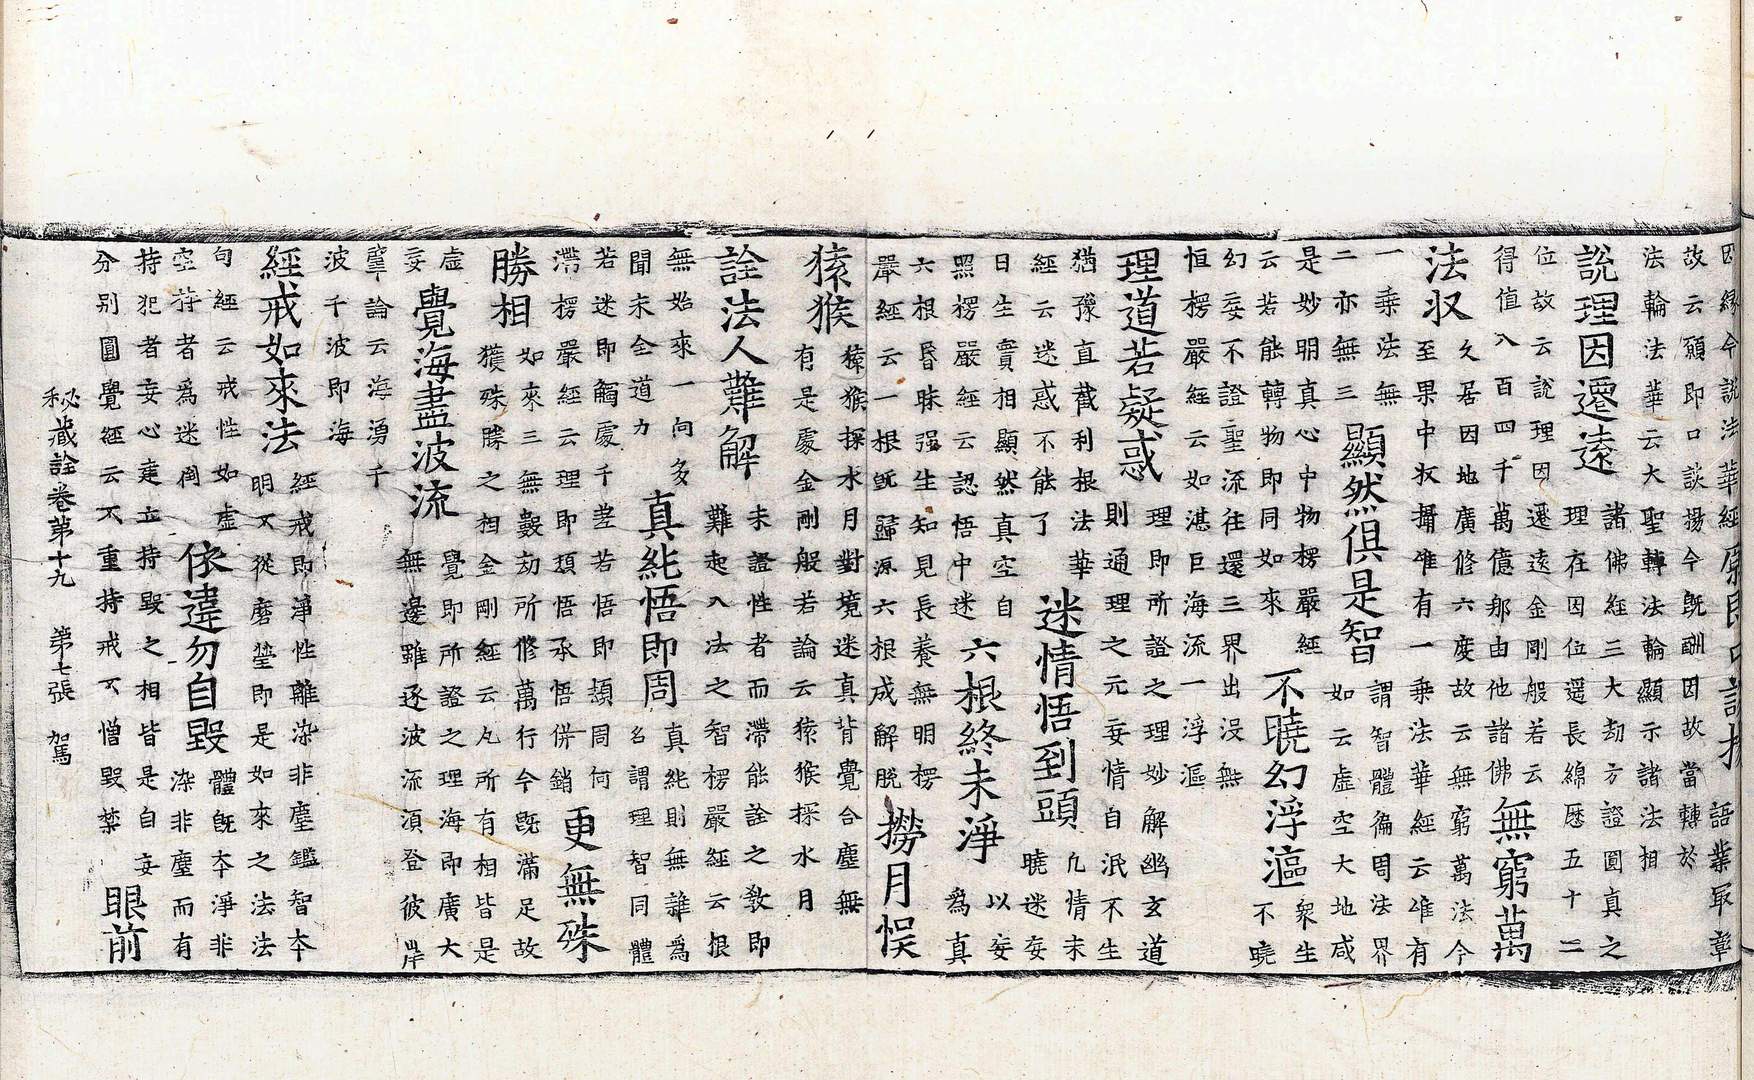 因縁今說法華經
故云願即口談揚今既酬因故當轉於
語業最彰
法輪法華云大聖轉法輪顯示諸法相
說理因遷遠
諸佛經三大劫方證圓真之
理在因位遐長綿歷五十二
位故云說理因遷遠金剛般若云
得值八百四千萬億那由他諸佛
無窮萬
法収
久居因地廣修六度故云無窮萬法今
至果中収攝唯有一乗法華經云唯有
一乗法無
二亦無三
顯然俱是智
謂智體徧周法界
如云虚空大地咸
是妙明真心中物楞嚴經
云若能轉物即同如來
不曉幻浮漚
衆生
不曉
幻妄不證聖流往還三界出没無
恒楞嚴經云如湛巨海流一浮漚
理道若疑惑
理即所證之理妙解幽玄道
則通理之元妄情自泯不生
猶豫直截利根法華
經云迷惑不能了
迷情悟到頭
凡情未
曉迷妄
日生實相顯然真空自
照楞嚴經云認悟中迷
六根終未淨
以妄
為真
六根昬昧强生知見長養無明楞
嚴經云一根既歸源六根成解脱
撈月悞
猿猴
猿猴探水月對境迷真背覺合塵無
有是處金剛般若論云猿猴探水月
詮法人難解
未證性者而滯能詮之教即
難起入法之智楞嚴經云根
無始來一向多
聞未全道力
真純悟即周
真純則無雜為
名謂理智同體
若迷即觸處千差若悟即頓周何
滯楞嚴經云理即頓悟承悟併銷
更無殊
勝相
如來三無數劫所修萬行今既滿足故
獲殊勝之相金剛經云凡所有相皆是
虚
妄
覺海盡波流
覺即所證之理海即廣大
無邊雖逐波流須登彼岸
華論云海湧千
波千波即海
經戒如來法
經戒即淨性離染非塵鑑智本
明不從磨瑩即是如來之法法
句經云戒性如虚
空持者為迷倒
依違勿自毁
體既本淨非
染非塵而有
持犯者妄心建立持毁之相皆是自妄
分别圓覺經云不重持戒不憎毁禁
眼前
秘藏詮卷第十九 第七張 駕